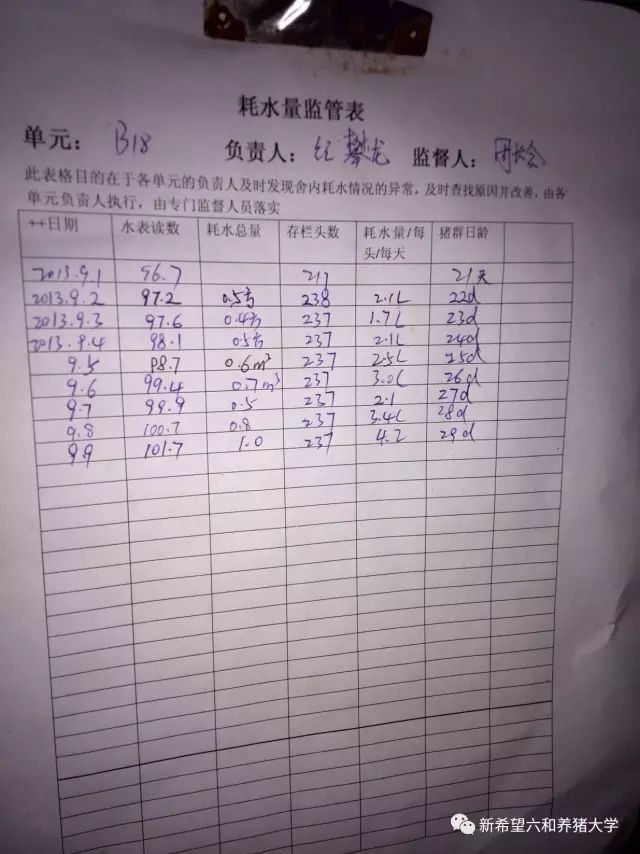 耗水量监管表
单元： B18 负责人： 樊龙 监督人：
此表格目的在于各单元的负责人及时发现舍内耗水情况的异常，及时查找原因并改善，由各
单元负责人执行，由专门监督人员落实
++日期 水表读数 耗水总量 存栏头数 耗水量/每头/每天 猪群日龄
2013.9.1 96.7 217 21天
2013.9.2 97.2 0.5方 238 2.1L 22d
2013.9.3 97.6 0.4方 237 1.7L 23d
2013.9.4 98.1 0.5方 237 2.1L 24d
9.5 98.7 0.6m³ 237 2.5L 25d
9.6 99.4 0.7m³ 237 3.0L 26d
9.7 99.9 0.5 237 2.1 27d
9.8 100.7 0.8 237 3.4L 28d
9.9 101.7 1.0 237 4.2 29d
新希望六和养猪大学